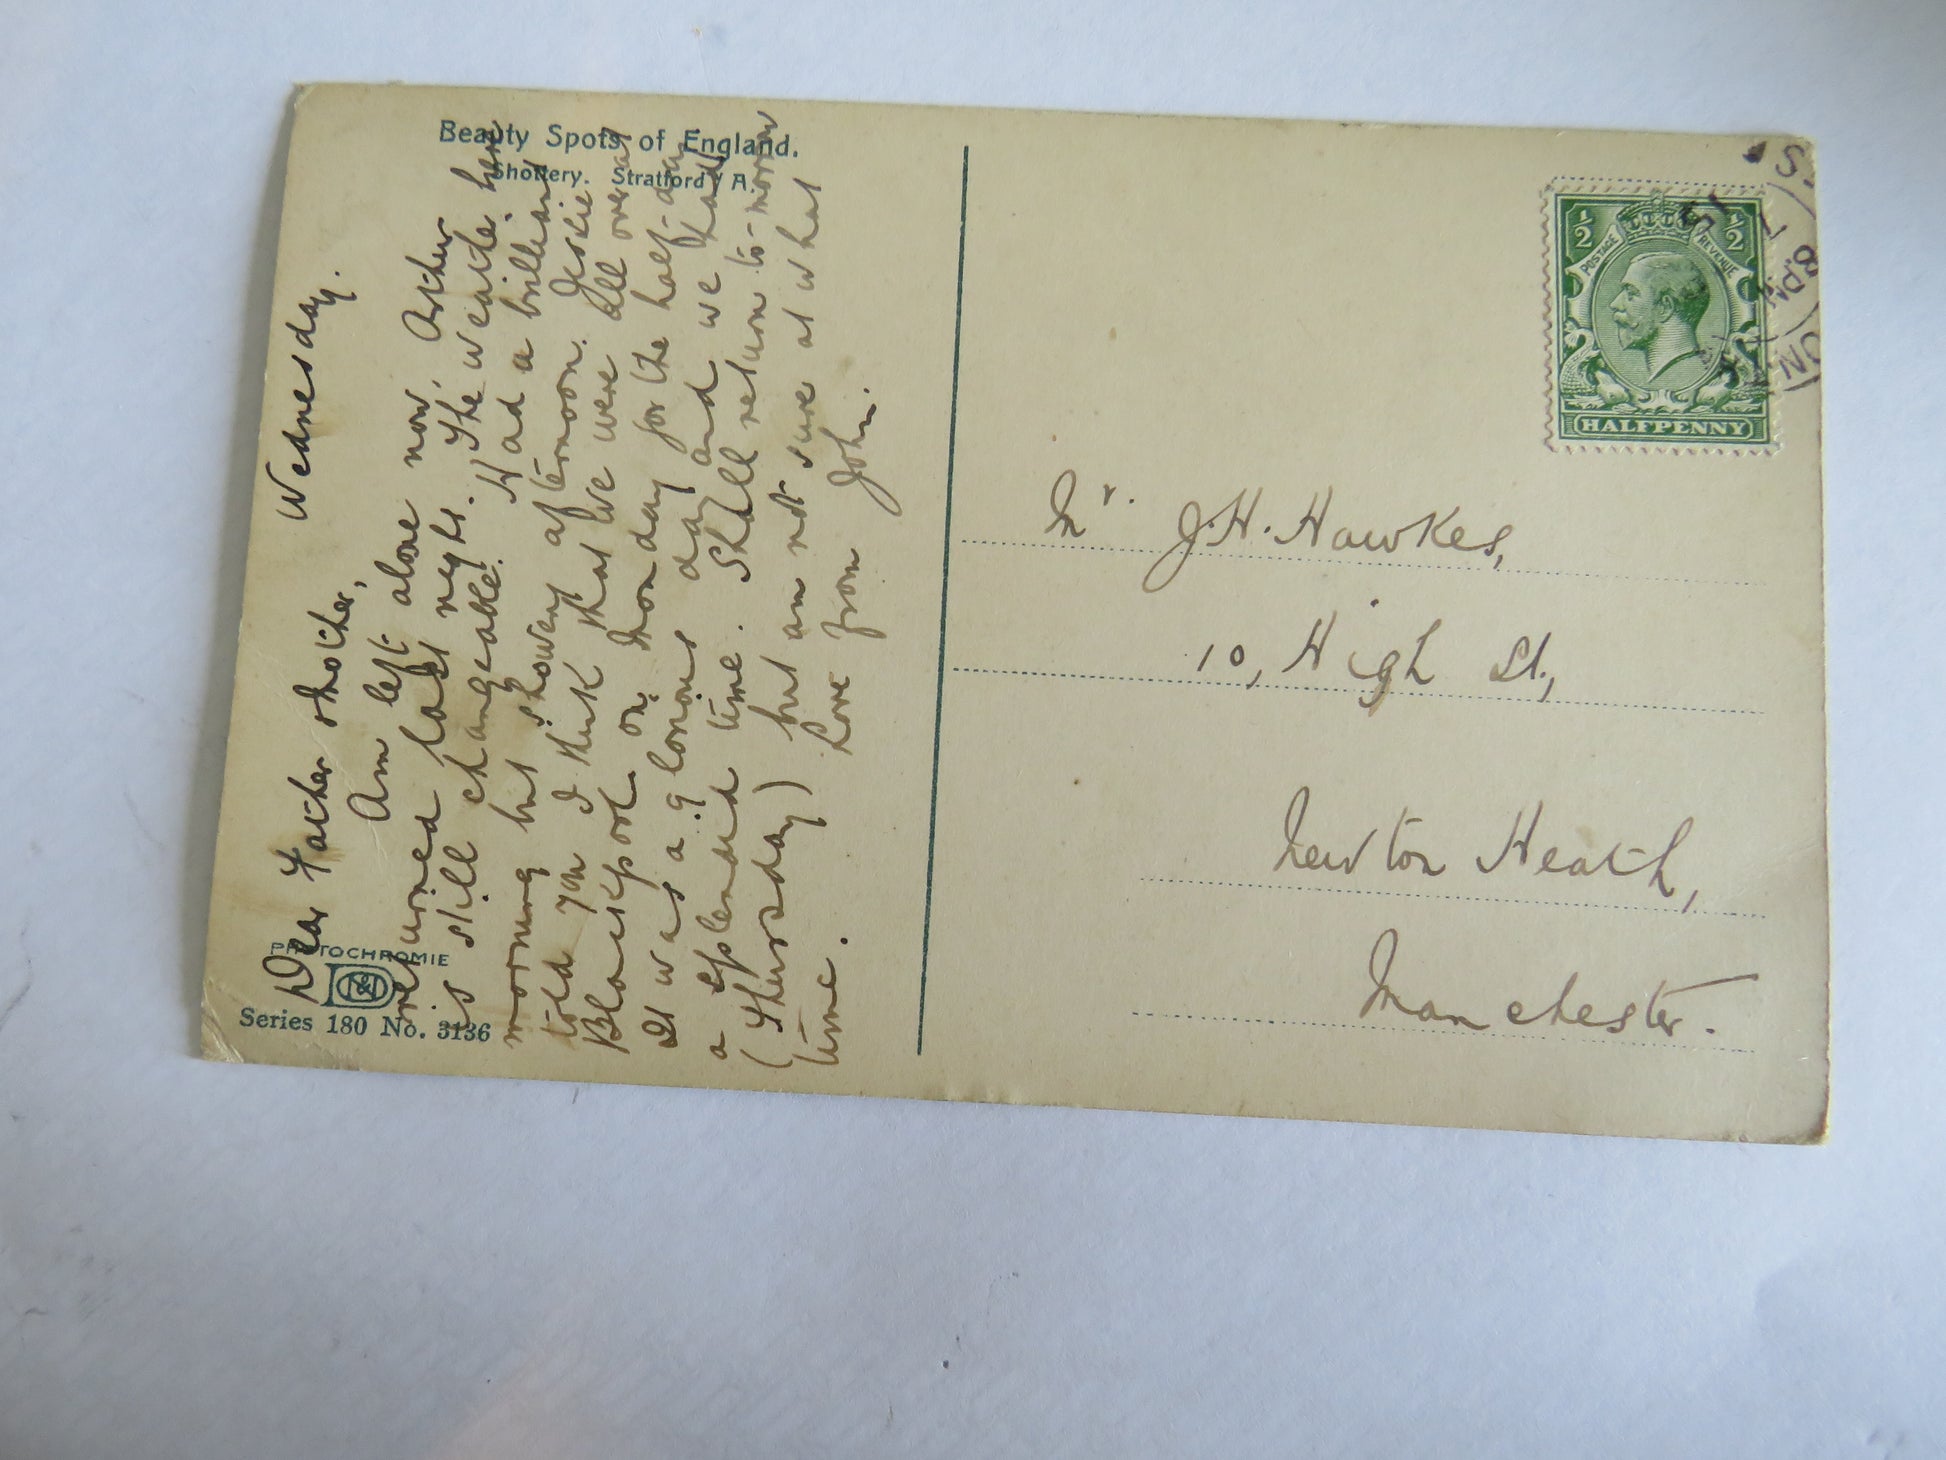 Beauty Spots of England.
Shottery. Stratford / A.
PHOTOCHROMIE
Series 180 No. 3136
Wednesday.
Dear Father & Mother,
Am left alone now, Arthur
returned last night. The weather here
is still changeable. Had a brilliant
morning but showery afternoon. Jessie
told you I think that we were all over at
Blackpool on Monday for the half-day
It was a glorious day and we had
a splendid time. Shall return to-morrow
(Thursday) but am not sure at what
time. Love from John.
½ ½
POSTAGE REVENUE
HALFPENNY
15
Mr. J.H. Hawkes,
10, High St.,
Newton Heath,
Manchester.